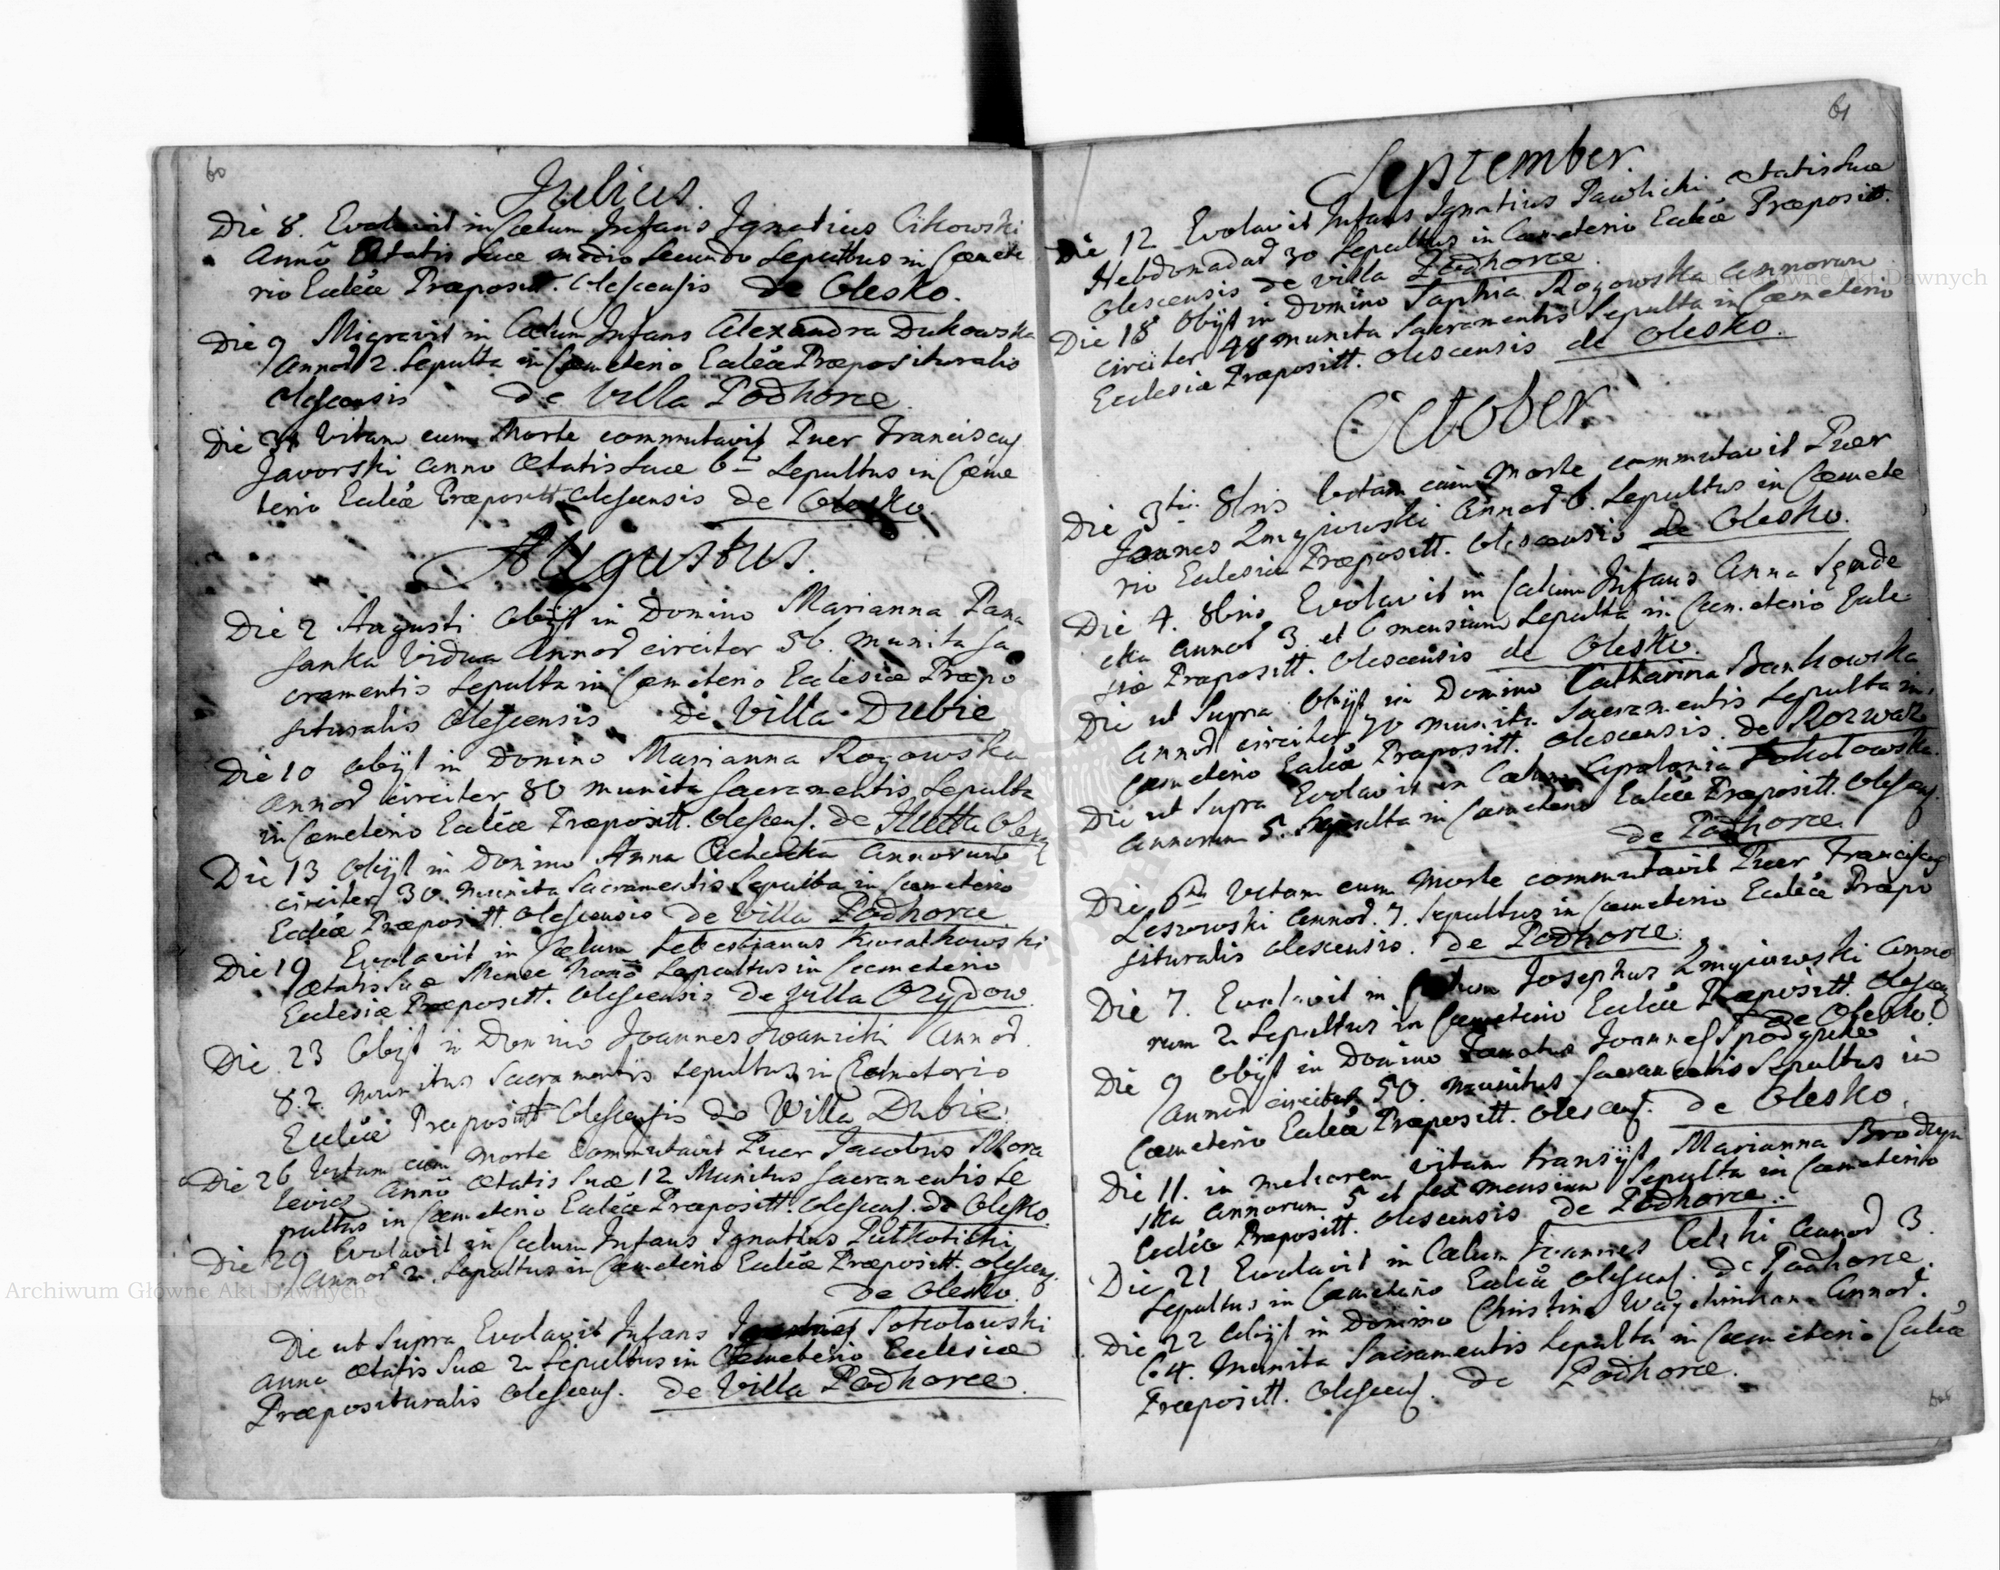 60
Julius.
Die 8. Evolavit in Cœlum Infans Ignatius Cikowski
Anno Ætatis Suæ medio Secundo Sepultus in Cœmete
rio Eccl̃iæ Præposit. Olescensis de Olesko.
Die 9 Migravit in Cœlum Infans Alexandra Dukowska
Annor̃ 2 Sepulta in Cœmeterio Eccl̃iæ Præposituralis
Olescensis de Villa Podhorce.
Die 31 Vitam cum Morte commutavit Puer Franciscus
Javorski Anno Ætatis Suæ 6to Sepultus in Cœme
terio Eccl̃iæ Præpositt. Olescensis de Olesko.
Augustus.
Die 2 Augusti Obijt in Domino Marianna Pana
Vidua Annor̃ circiter 56. munita Sa
cramentis Sepulta in Cœmeterio Ecclesiæ Præpo
situralis Olescensis de Villa Dubie
Die 10 Obijt in Domino Marianna Rogowska
Annor̃ circiter 80 munita Sacramentis Sepulta
in Cœmeterio Eccl̃iæ Præpositt. Olescens. de
Die 13 Obijt in Domino Anna Annorum
circiter 30. munita Sacramentis Sepulta in Cœmeterio
Eccl̃iæ Præpositt. Olescensis de Villa Podhorce
Die 19 Evolavit in Cœlum Sebestianus Kwiatkowski
Ætatis Suæ Mense Nono Sepultus in Cœmeterio
Ecclesiæ Præpositt. Olescensis de Villa Ożydow.
Die 23 Obijt in Domino Joannes Iwanicki Annor̃.
82 munitus Sacramentis Sepultus in Cœmeterio
Eccl̃iæ Præpositt Olescensis de Willa Dubie.
Die 26 Vitam cum Morte Commutavit Puer Jacobus Mora
Anno Ætatis Suæ 12 Munitus Sacramentis Se
pultus in Cœmeterio Eccl̃iæ Præpositt. Olescens. de Olesko.
Die 29 Evolavit in Cœlum Infans Ignatius
Annor̃ 2. Sepultus in Cœmeterio Eccl̃iæ Præpositt. Olescens.
de Olesko.
Die ut Supra Evolavit Infans Sokołowski
Anno Ætatis Suæ 2 Sepultus in Cœmeterio Ecclesiæ
Præposituralis Olescens. de Villa Podhorce.
61
September.
Die 12 Evolavit Infans Ignatius Pawlicki Ætatis Suæ
Hebdomadar̃ 30 Sepultus in Cœmeterio Eccl̃iæ Præpositt.
Olescensis de Villa Podhorce.
Die 18 Obijt in Domino Sophia Rogowska Annorum
circiter 48 munita Sacramentis Sepulta in Cœmeterio
Ecclesiæ Præpositt. Olescensis de Olesko.
October.
Die 3tia 8bris Vitam cum Morte commutavit Puer
Joannes Zmyiowski Annor̃ 6. Sepultus in Cœmete
rio Ecclesiæ Præpositt. Olescensis de Olesko.
Die 4. 8bris Evolavit in Cœlum Infans Anna Sęnde
cka Annor̃ 3. et 6 mensium Sepulta in Cœmeterio Eccle
siæ Præpositt. Olescensis de Olesko.
Die ut Supra Obijt in Domino Catharina Bankowska
Annor̃ circiter 70 munita Sacramentis Sepulta in
Cœmeterio Eccl̃iæ Præpositt. Olescensis. de Rozważ
Die ut Supra Evolavit in Cœlum Apolonia Sokołowska.
Annorum 5. Sepulta in Cœmeterio Eccl̃iæ Præpositt. Olescens.
de Podhorce
Die 6ta Vitam cum Morte commutavit Puer Franciscus
Leszowski Annor̃. 7. Sepultus in Cœmeterio Eccl̃iæ Præpo
situralis Olescensis. de Podhorce.
Die 7. Evolavit in Cœlum Josephus Zmyiowski Anno
rum 2 Sepultus in Cœmeterio Eccl̃iæ Præpositt. Olescens
de Olesko.
Die 9 Obijt in Domino Joannes
Annor̃ circiter 50. munitus Sacramentis Sepultus in
Cœmeterio Eccl̃iæ Præpositt. Olescens. de Olesko.
Die 11. in meliorem vitam transijt Marianna Brodzyn
ska Annorum 5 et sex mensium Sepulta in Cœmeterio
Eccl̃iæ Præpositt. Olescensis de Podhorce.
Die 21 Evolavit in Cœlum Joannes Celski Annor̃ 3.
Sepultus in Cœmeterio Eccl̃iæ Olescens. de Podhorce.
Die 22 Obijt in Domino Christina Annor̃.
64. Munita Sacramentis Sepulta in Cœmeterio Eccl̃iæ
Præpositt. Olescens. de Podhorce.
Archiwum Główne Akt Dawnych
Archiwum Główne Akt Dawnych